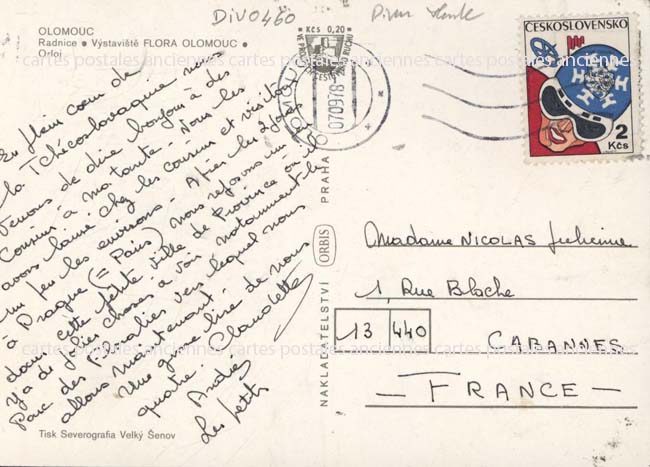 DIV0460
OLOMOUC
Radnice • Výstaviště FLORA OLOMOUC •
Orloj
En plein cœur de
la Tchécoslovaquie nous
venons de dire bonjour à des
cousins à ma tante. Nous les
avons laissé chez les cousins et visitons
un peu les environs. Après les 2 jours
à Prague (= Paris) nous reposons un peu
dans cette petite ville de Province où il
Y a de jolies choses à voir notamment le
Parc des Floralies vers lequel nous
allons maintenant.
Une grosse bise de nous
quatre. Claudette
André
Les petits
Tisk Severografia Velký Šenov
NAKLADATELSTVÍ ORBIS PRAHA
Kčs 0,20
OLOMOUC
070978
ČESKOSLOVENSKO
2
Kčs
Madame NICOLAS
1, Rue Bloche
13 440
CABANNES
— FRANCE —
cartes postales anciennes cartes postales anciennes cartes postales anciennes
cartes postales anciennes cartes postales anciennes cartes postales anciennes